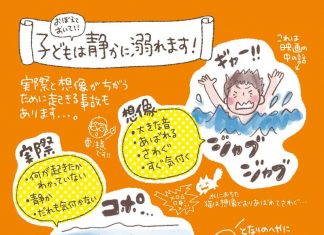 おぼえて
おいて!!
子どもは静かに溺れます!
実際と想像がちがう
ために起きる事故も
あります…。
要注意です!!
これは
映画の
中の話
ギャー!!
想像
・大きな音
・あばれる
・さわぐ
・すぐ気付く
ジャブ
ジャブ
実際
・何が起きたか
わかっていない
・静か
・だれも気付かない
水におちた
猫は想像どおりあばれてさわぐ…
コポ…
となりのへやに